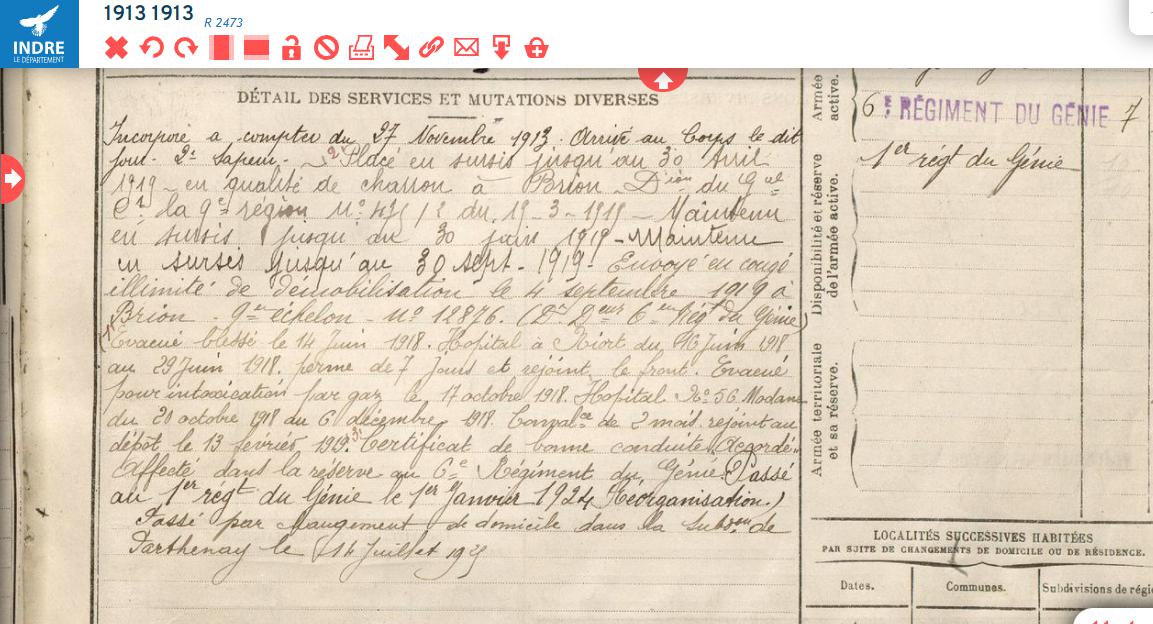 1913 1913 R 2473
INDRE
LE DÉPARTEMENT
DÉTAIL DES SERVICES ET MUTATIONS DIVERSES
Incorporé a compter du 27 Novembre 1913. Arrivé au Corps le dit
jour. 2e Sapeur. 2° Placé en sursis jusqu'au 30 Avril
1919 en qualité de charron à Brion. Don du Gal
Ct la 9e région No /2 du 19-3-1919 - Maintenu
en sursis jusqu'au 30 juin 1919 - Maintenu
en sursis jusqu'au 30 sept. 1919. Envoyé en congé
illimité de démobilisation le 4 septembre 1919 à
Brion. 9e echelon. No 12876. (Dt Deur 6e Régt du Génie)
(1° Evacué blessé le 14 Juin 1918. Hopital à Niort du 16 Juin 1918
au 29 Juin 1918. perme de 7 jours et rejoint le front. Evacué
pour intoxication par gaz le 17 octobre 1918. Hopital No 56 Modane
du 20 octobre 1918 au 6 décembre 1918. Convalce de 2 mois. rejoint au
dépôt le 13 fevrier 1919. 3° Certificat de bonne conduite "Accordé"
Affecté dans la réserve au 6e Régiment du Génie. Passé
au 1er régt du Génie le 1er Janvier 1924 (Réorganisation.)
Passé par changement de domicile dans la Subdon de
Parthenay le 14 Juillet
Armée
active.
6e RÉGIMENT DU GÉNIE 7
Disponibilité et réserve
de l'armée active.
1er régt du Génie
Armée territoriale
et sa réserve.
LOCALITÉS SUCCESSIVES HABITÉES
PAR SUITE DE CHANGEMENTS DE DOMICILE OU DE RÉSIDENCE.
Dates. Communes. Subdivisions de régi